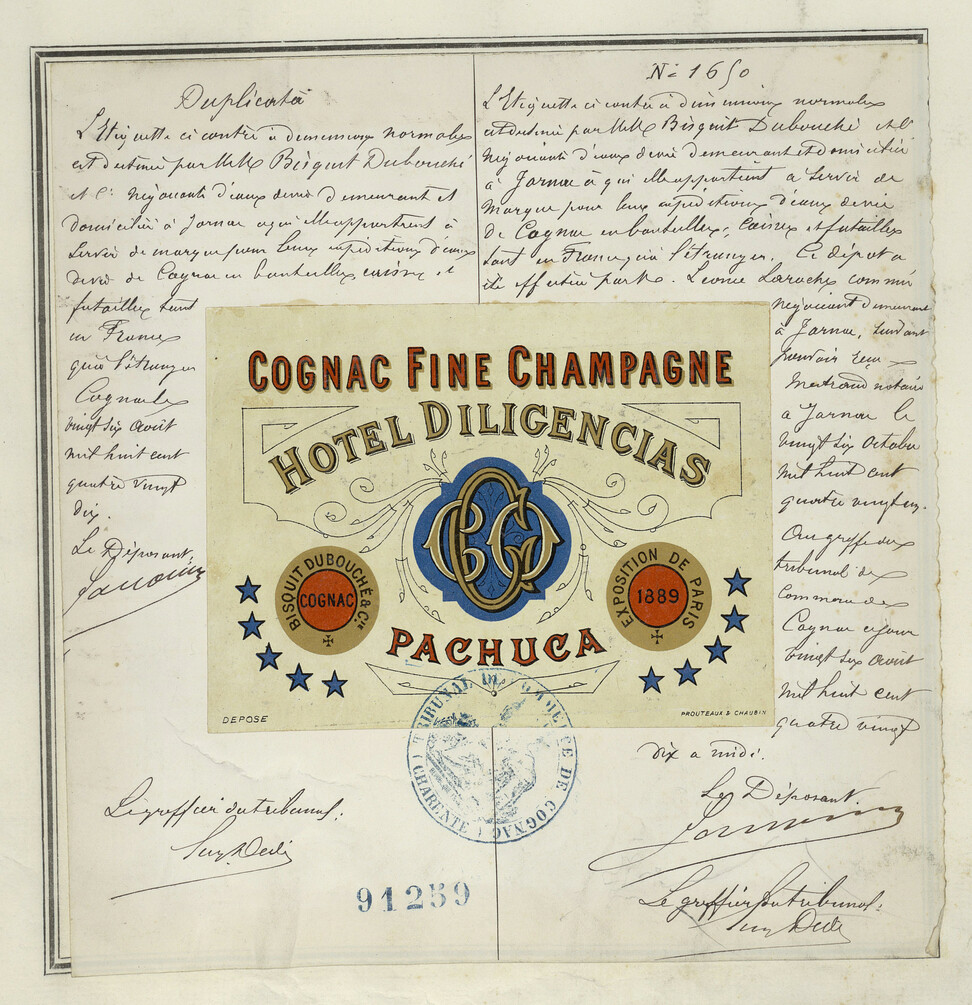 Duplicata
L'Etiquette ci contre à dimensions normales
est destinée par MM Bisquit Dubouché
et Cie Négociants d'eaux de vie demeurant et
domiciliés à Jarnac à qui elle appartient à
servir de marque pour leurs expéditions d'eaux
de vie de Cognac en bouteilles, caisses et
futailles tant
en France
qu'à l'étranger
Cognac le
vingt six Août
mil huit cent
quatre vingt
dix.
Le Déposant,
Le greffier du tribunal:
No 1650
L'Etiquette ci contre à dimensions normales
est destinée par MM Bisquit Dubouché et Cie
Négociants d'eaux de vie demeurant et domiciliés
à Jarnac à qui elle appartient à servir de
marque pour leurs expéditions d'eaux de vie
de Cognac en bouteilles, caisses et futailles
tant en France qu'à l'étranger. Ce dépôt a
été effectué par M. Léonce Laroche commis
négociant demeurant
à Jarnac, suivant
pouvoir reçu
notaire
à Jarnac le
vingt six Octobre
mil huit cent
quatre vingt un.
Au greffe du
tribunal de
Commerce de
Cognac ce jour
vingt six Août
mil huit cent
quatre vingt
dix à midi.
Le Déposant.
Le greffier du tribunal:
COGNAC FINE CHAMPAGNE
HOTEL DILIGENCIAS
BISQUIT DUBOUCHÉ & Cie
COGNAC
EXPOSITION DE PARIS
1889
PACHUCA
DEPOSE
PROUTEAUX & CHAUBIN
TRIBUNAL DE COMMERCE DE COGNAC
(CHARENTE)
91259